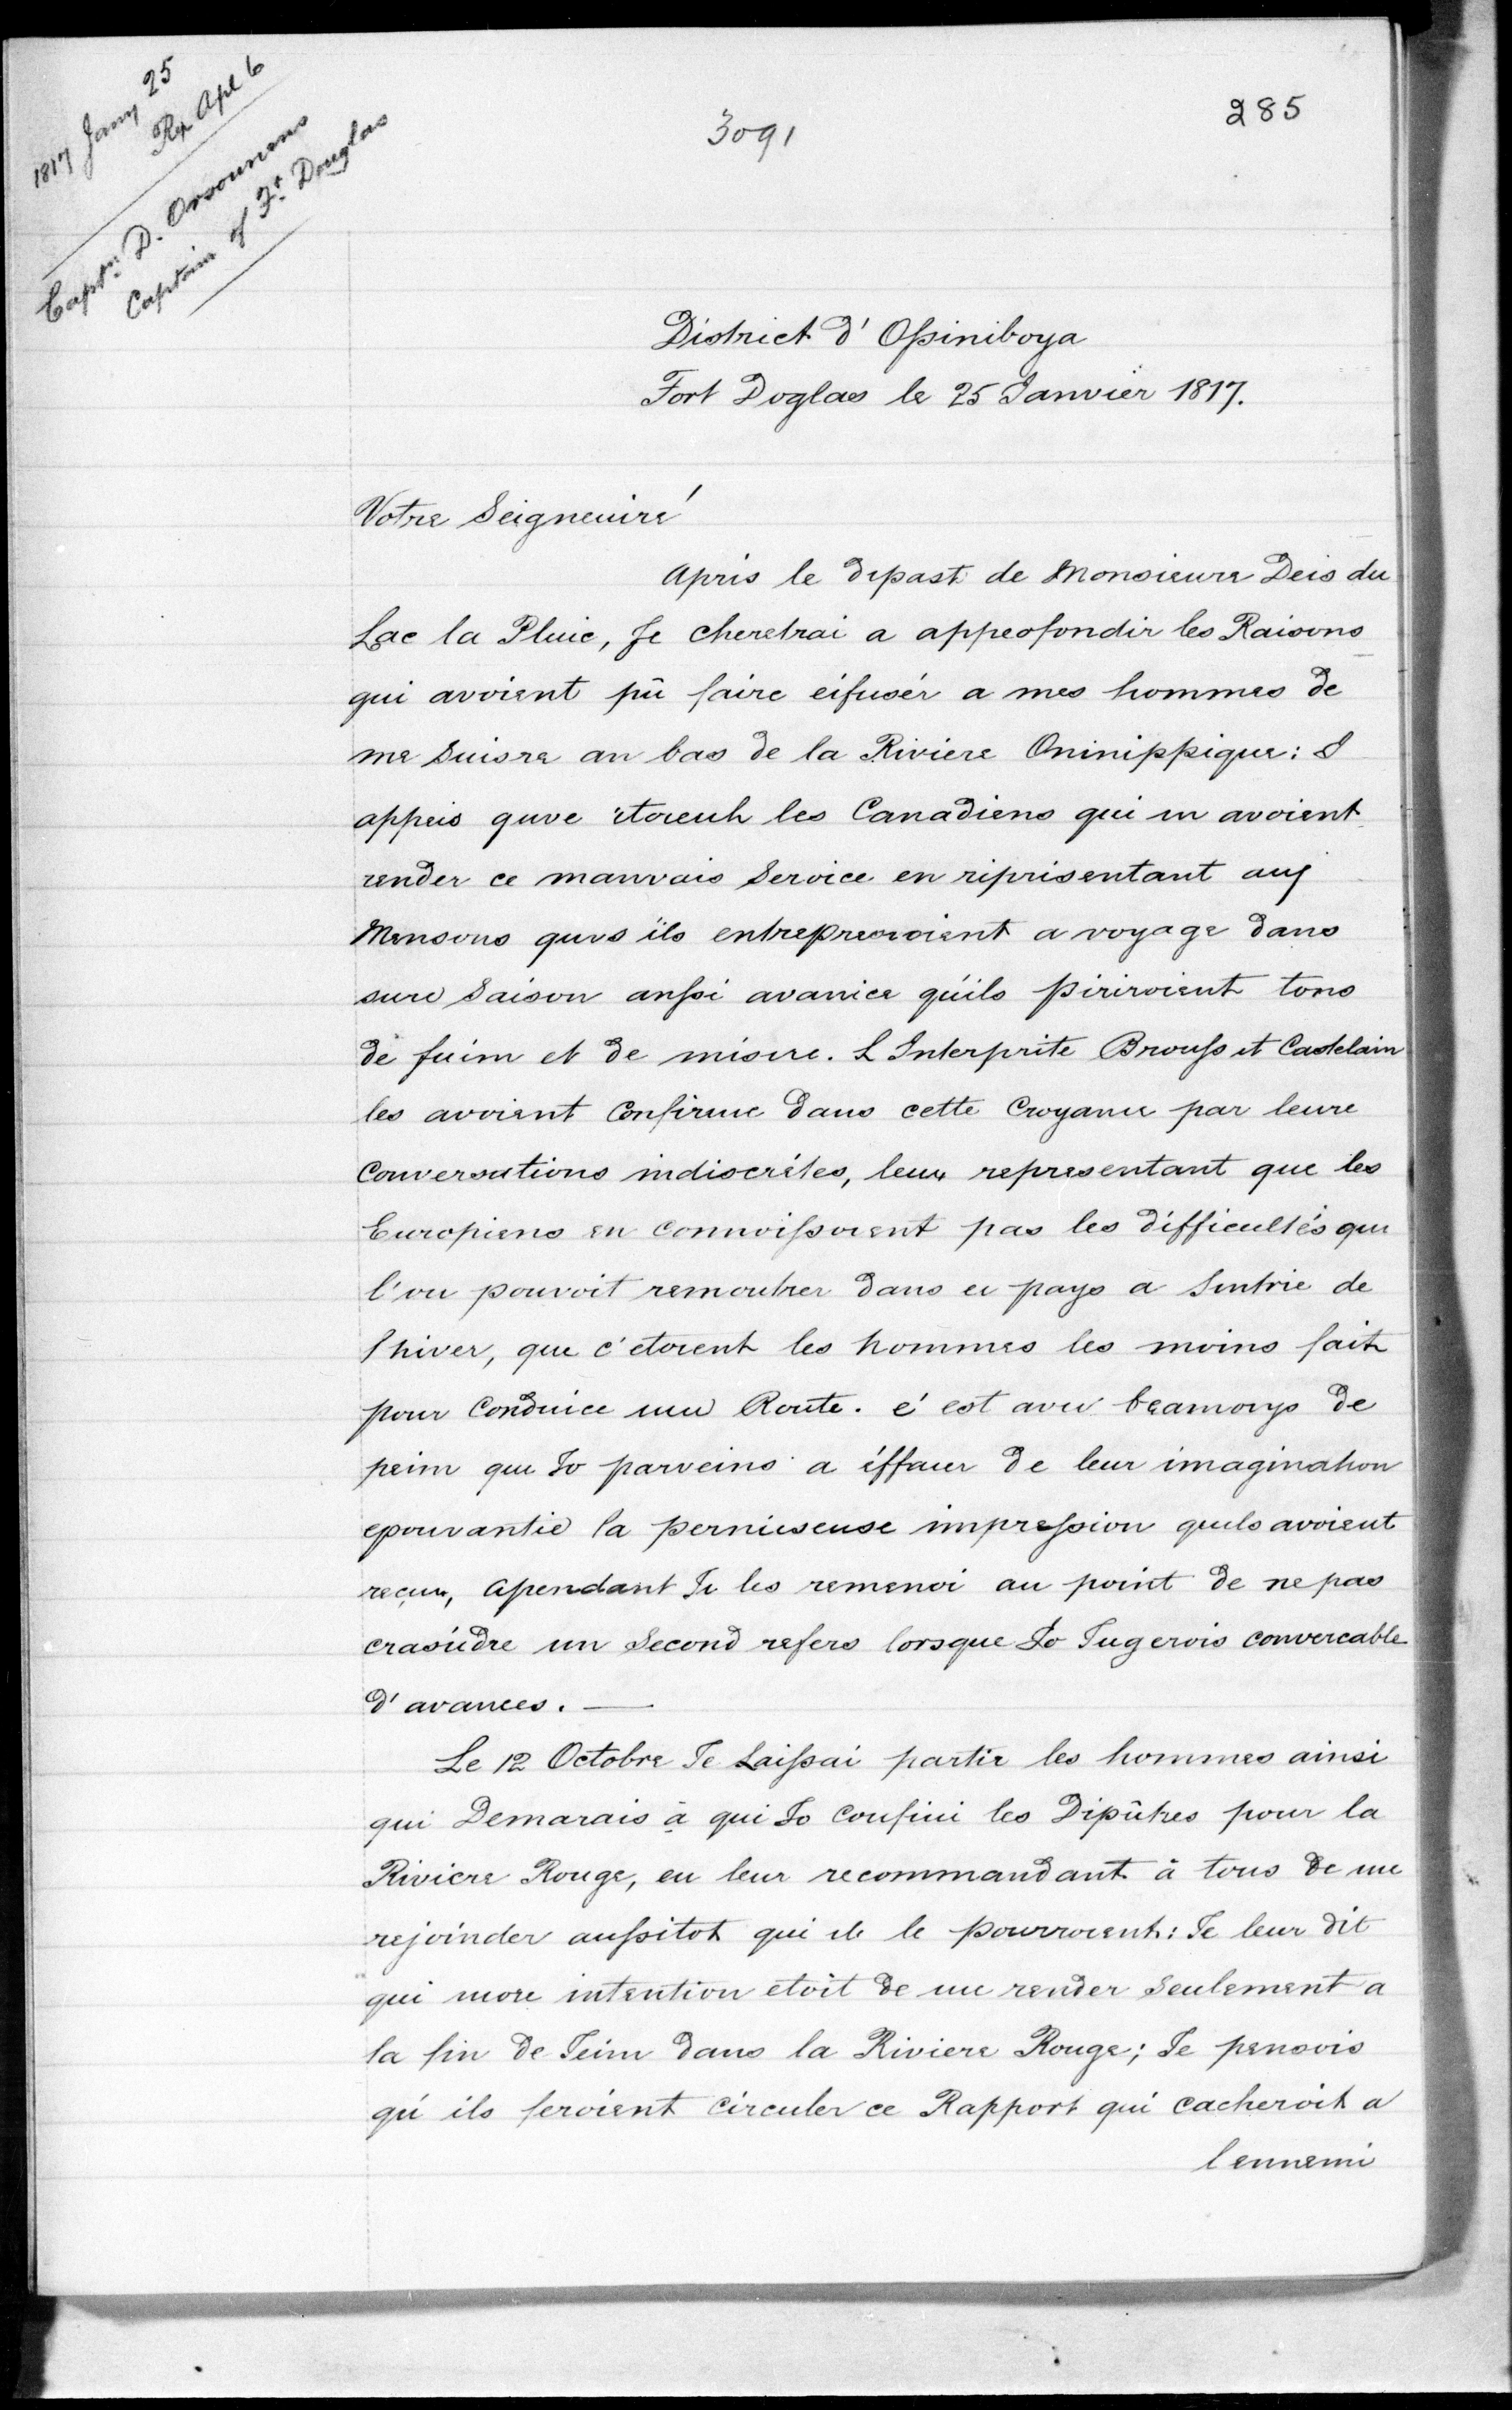 1817 Jany 25
Rx Apl 6
Captn. D. Orsounens
Captain of Ft. Douglas
3091
285
District d' Ossiniboya
Fort Doglas le 25 Janvier 1817.
Votre Seigneuire'
Apris le depast de Monsieure Deis du
Lac la Pluie, Je cheretrai a appeofondir les Raisons
qui avoient pû faire eifusér a mes hommes de
me suisre an bas de la Riviere Oninippique: I
appeis quve 'etoreuh les Canadiens qui m avoient
render ce manvais Service en riprisentant auj
Mensons quvs ïls entreprevoient a voyage dans
sure Saison anssi avanice qu'ils piriroient tons
de fuim et de misere. L Interprite Brouss et Castelain
les avoient Confirme dans cette Croyanu par leure
Conversations indiscrétes, leux representant que les
Europiens en connoissorent pas les difficultés qu
l'ou pouvoit remoutrer dans ei pays a Sintrie de
l hiver, que c'etorent les hommes les moins fait
pour Conduice uni Route. c' est avei beamouys de
peim que Jo parveins a éffacer de leur imagination
epouvantie la pernieseuse impression quels avoient
reçun, Apendant Je les remenoi au point de ne pas
crasúdre un Second refers lorsque Jo Jugerois convercable
d' avances. —
Le 12 Octobre Je Laissai partie les hommes ainsi
qui Demarais à qui Jo Coufiui les Dipûtres pour la
Riviere Rouge, en leur recommandant à tous de me
rejoinder aussitot qui ils le pourroient: Je leur dit
qui more intention etoit de me render Seulement a
la fin de Jeim dans la Riviere Rouge; Je pensois
qu' ils feroient Circuler ce Rapport qui Cacheroit a
lennemi